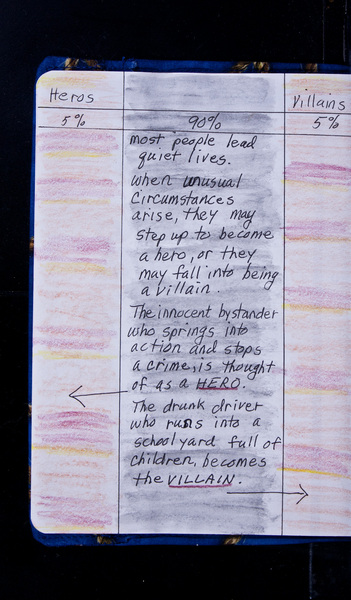 Heros
Villains
5%
90%
5%
most people lead
quiet lives.
when unusual
circumstances
arise, they may
step up to become
a hero, or they
may fall into being
a villain.
The innocent bystander
who springs into
action and stops
a crime, is thought
of as a HERO.
The drunk driver
who runs into a
school yard full of
children, becomes
the VILLAIN.